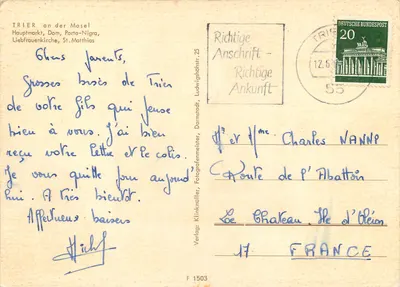 TRIER an der Mosel
Hauptmarkt, Dom, Porta-Nigra,
Liebfrauenkirche, St. Matthias
Chers parents,
Grosses bises de Trier
de votre fils qui pense
bien à vous. J'ai bien
reçu votre lettre et le colis.
Je vous quitte pour aujourd'
hui. A Très bientôt.
Affectueux baisers
Verlag: Fotografenmeister, Darmstadt, Ludwigshöhstr. 25
F 1503
Richtige
Anschrift -
Richtige
Ankunft
TRIER
12.
55
DEUTSCHE BUNDESPOST
20
Mr et Mme Charles NANNP
Route de l'Abattoir
Le Chateau. Ile d'Oléron
17 FRANCE